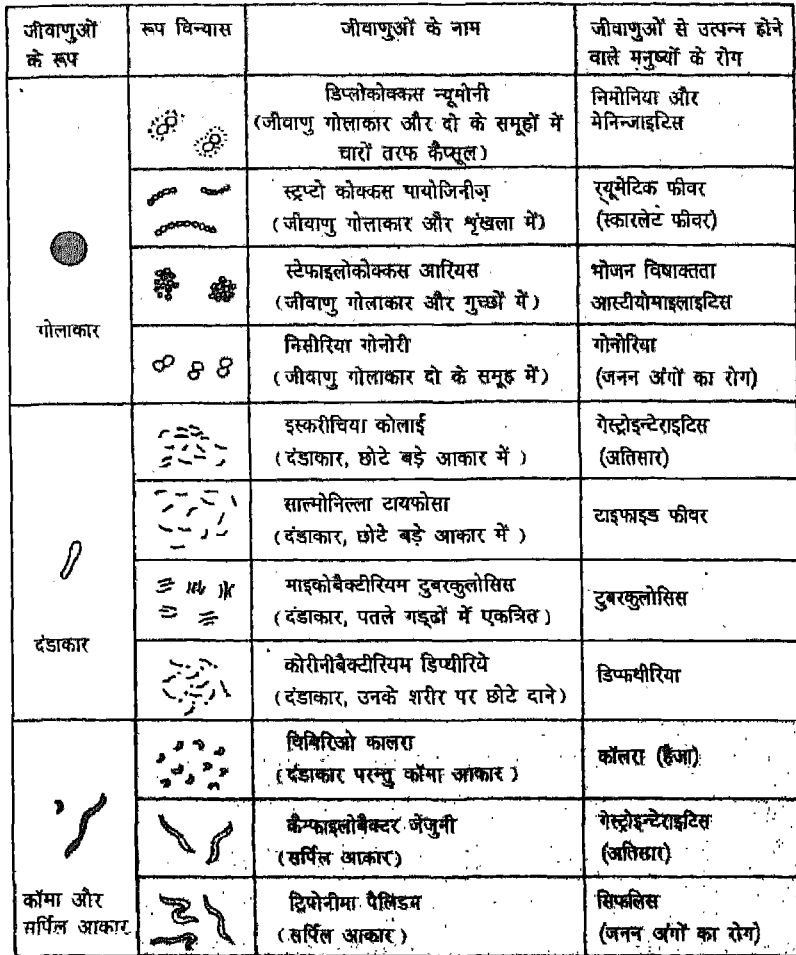 जीवाणुओं
के रूप
रूप विन्यास
जीवाणुओं के नाम
जीवाणुओं से उत्पन्न होने
वाले मनुष्यों के रोग
गोलाकार
डिप्लोकोक्कस न्यूमोनी
(जीवाणु गोलाकार और दो के समूहों में
चारों तरफ कैप्सूल)
निमोनिया और
मेनिन्जाइटिस
स्ट्रप्टो कोक्कस पायोजिनीज़
(जीवाणु गोलाकार और शृंखला में)
र्‌यूमेटिक फीवर
(स्कारलेट फीवर)
स्टेफाइलोकोक्कस आरियस
(जीवाणु गोलाकार और गुच्छों में)
भोजन विषाक्तता
आस्टीयोमाइलाइटिस
निसीरिया गोनोरी
(जीवाणु गोलाकार दो के समूह में)
गोनोरिया
(जनन अंगों का रोग)
दंडाकार
इस्करीचिया कोलाई
(दंडाकार, छोटे बड़े आकार में)
गेस्ट्रोइन्टेराइटिस
(अतिसार)
साल्मोनिल्ला टायफोसा
(दंडाकार, छोटे बड़े आकार में)
टाइफाइड फीवर
माइकोबैक्टीरियम टुबरकुलोसिस
(दंडाकार, पतले गड्ढों में एकत्रित)
टुबरकुलोसिस
कोरीनीबैक्टीरियम डिप्थीरिये
(दंडाकार, उनके शरीर पर छोटे दाने)
डिफ्थीरिया
कॉमा और
सर्पिल आकार
विबिरिओ कालरा
(दंडाकार परन्तु कॉमा आकार)
कॉलरा (हैजा)
कैम्फाइलोबैक्टर जेंजुनी
(सर्पिल आकार)
गेस्ट्रोइन्टेराइटिस
(अतिसार)
ट्रिपोनीमा पैलिडम
(सर्पिल आकार)
सिफलिस
(जनन अंगों का रोग)